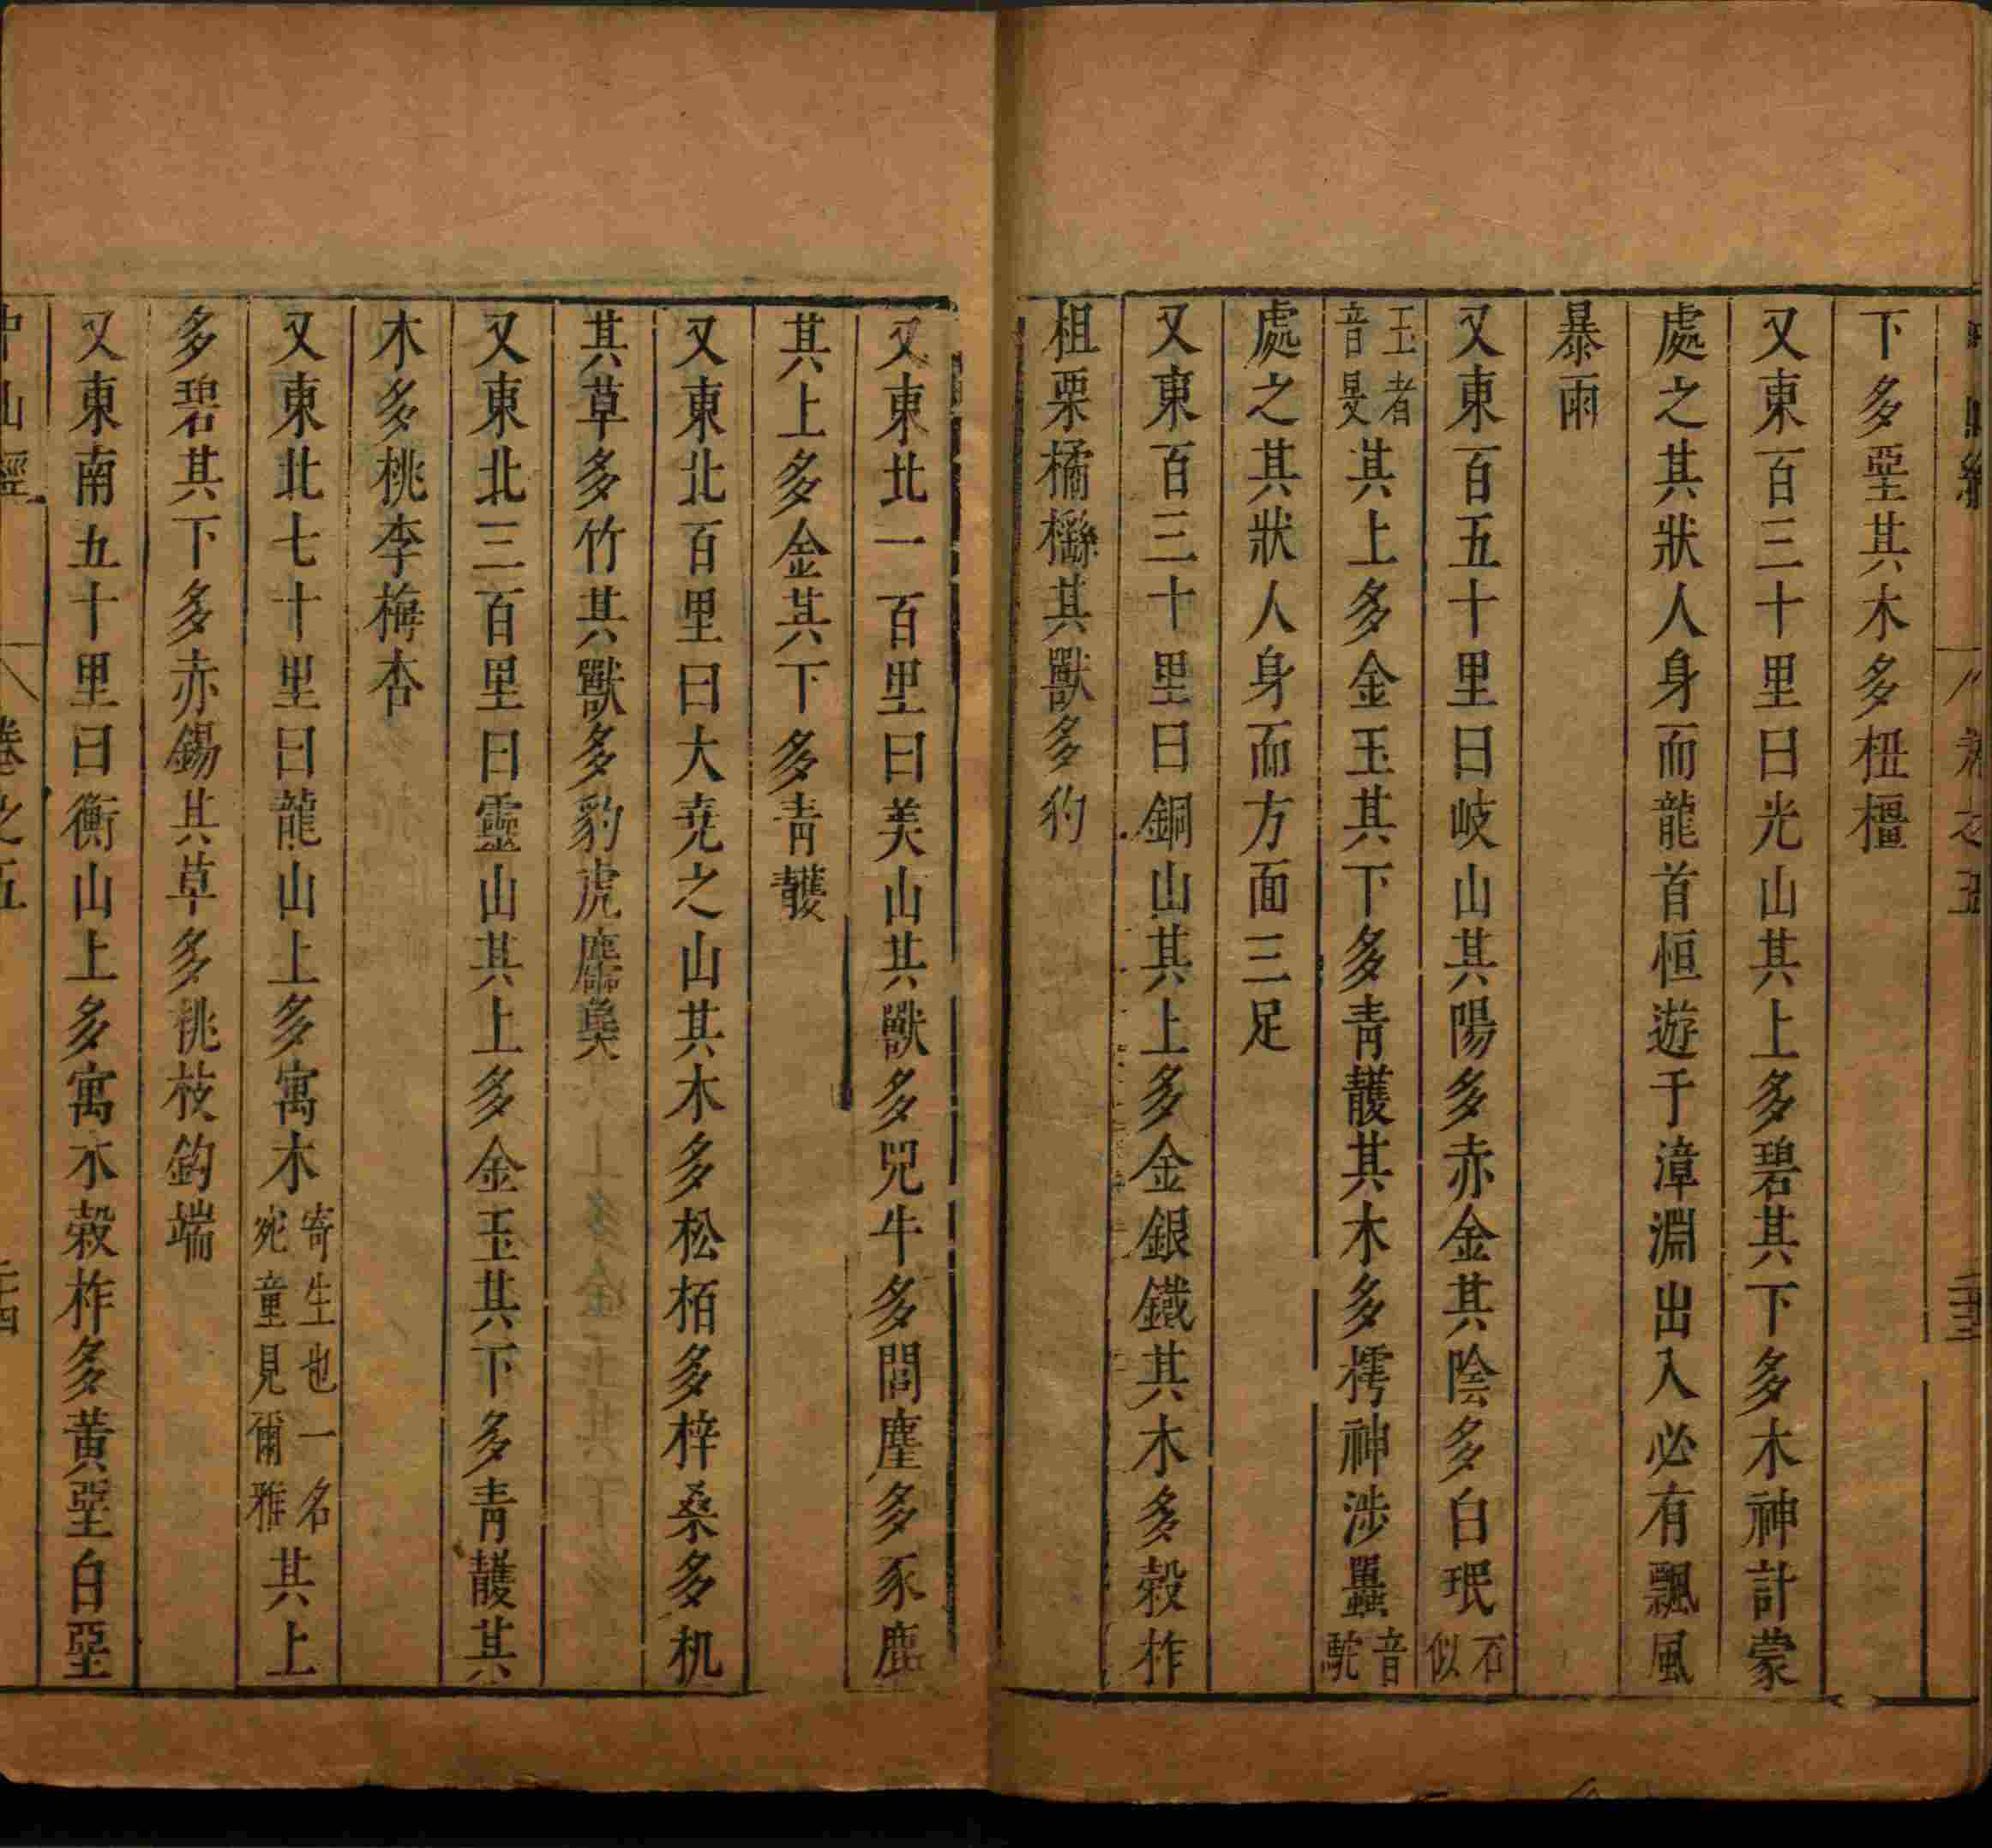 下多堊其木多杻橿
又東百三十里曰光山其上多碧其下多木神計蒙
處之其狀人身而龍首恒遊于漳淵出入必有飄風
暴雨
又東百五十里曰岐山其陽多赤金其陰多白珉石似
玉者音旻其上多金玉其下多青雘其木多樗神涉𧕦音䭾
處之其狀人身而方面三足
又東百三十里曰銅山其上多金銀鐵其木多榖柞
柤栗橘櫾其獸多犳
又東北一百里曰美山其獸多兕牛多閭麈多豕鹿
其上多金其下多青雘
又東北百里曰大堯之山其木多松栢多梓桑多机
其草多竹其獸多豹虎麢㚟
又東北三百里曰靈山其上多金玉其下多青雘其
木多桃李梅杏
又東北七十里曰龍山上多寓木寄生也一名宛童見爾雅其上
多碧其下多赤錫其草多桃枝鈎端
又東南五十里曰衡山上多寓木榖柞多黃堊白堊
中山經 卷之五